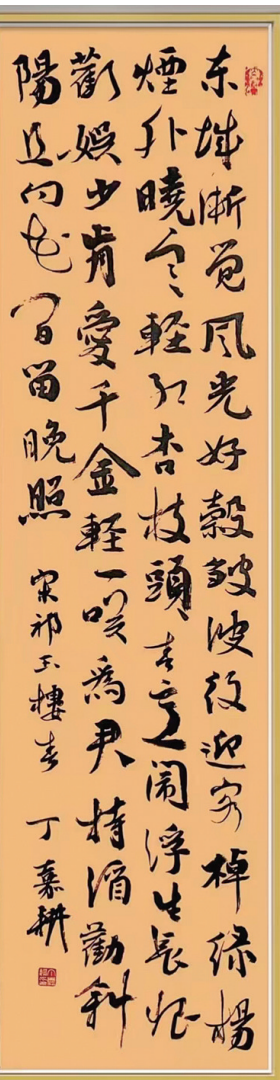 东城渐觉风光好縠皱波纹迎客棹绿楊
煙外曉寒輕红杏枝頭春意闹浮生长恨
歡娱少肯愛千金輕一笑為君持酒勸斜
陽且向花间留晚照 宋祁玉樓春 丁嘉耕